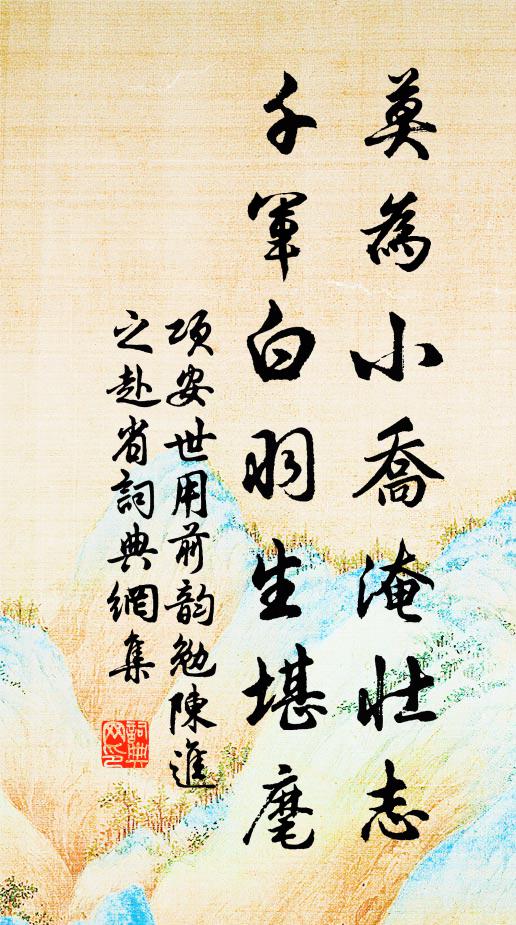 莫為小喬淹壯志
千軍白羽生堪麾
項安世用前韵勉陳進
之赴省詞典網集